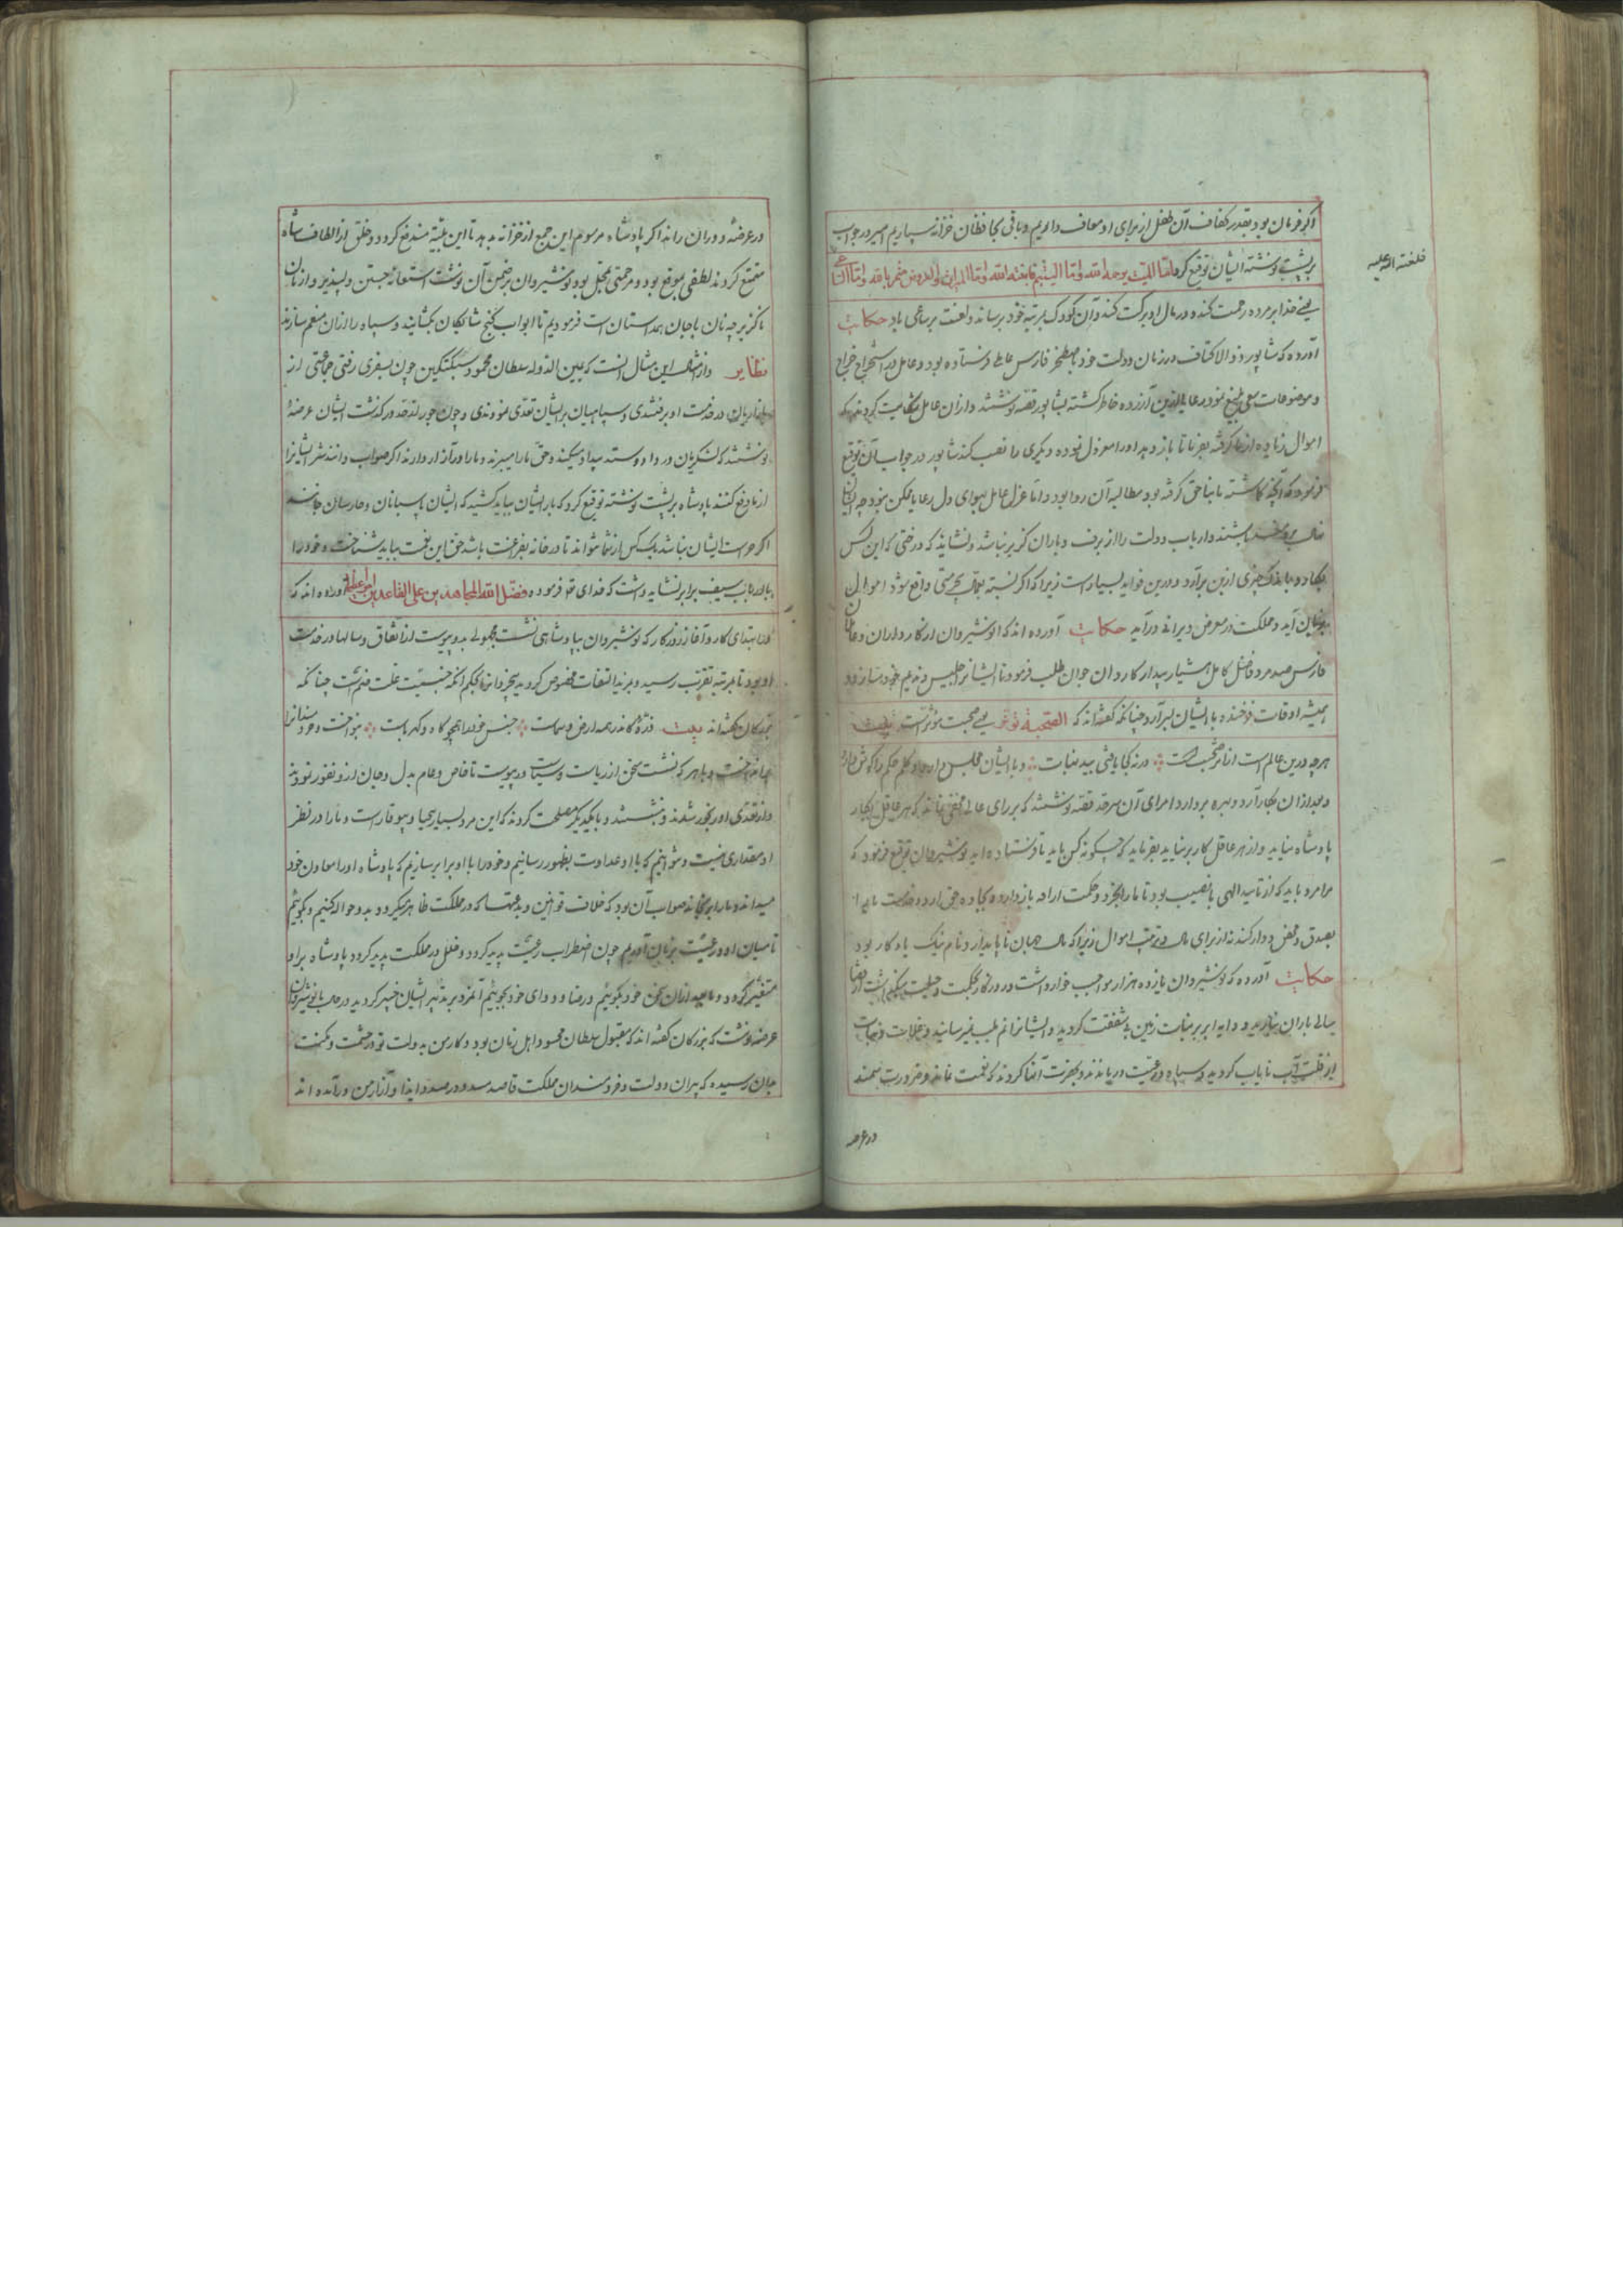 اگر فرمان بود بقدر کفاف آن طفل از برای او معاف داریم و باقی بمحافظان خزانه سپاریم امیر در جواب
بر پشت نوشته ایشان توقیع کرد امّا المیّت یرحمه الله و امّا الیتیم فابغته الله و امّا المال فثمره الله و امّا الساعی
فلعنة الله علیه
یعنی خدا بر مرده رحمت کند و در مال او برکت کند و آن کودک بمرتبه خود برساند و لعنت بر ساعی باد حکایت
آورده که شاپور ذوالاکتاف در زمان دولت خود باصطخر فارس عاملی فرستاده بود و عامل در استخراج خراج
و موضوعات سعی بلیغ نمود رعایا ازین آزرده خاطر گشته بشاپور قصه نوشتند و ازان عامل شکایت کردند که
اموال زیاده از ما گرفته بفرما تا باز دهد و او را معزول نموده دیگری را نصب کند شاپور در جواب آن توقیع
فرمود که آنچه گماشته ما بناحق گرفته بود مطالبه آن روا بود و امّا عزل عامل بهوای دل رعایا ممکن نبود چه ایشان
باشند و ارباب دولت را از برف و باران گزیر نباشد و نشاید که درختی که این کس
بکارد و باندک چیزی از بن برآرد و درین فواید بسیار است زیرا که اگر
آید و مملکت در معرض ویرانی درآید حکایت آورده اند که انوشیروان از کارداران و عاملان
فارس صد مرد فاضل کامل هشیار بیدار کاردان جوان طلب فرمود تا ایشانرا جلیس و ندیم خود سازد و
همیشه اوقات فرخنده با ایشان بسر آرد چنانکه گفته اند که الصّحبة تؤثر یعنی صحبت مؤثر است بیت
هرچه درین عالم است اثر صحبت است ؞ ورنه کجا یافتی بید نبات ؞ و با ایشان مجلس دارد و کلام حکم را گوش دارد
و بعد از آن بکار آرد و بهره بردارد امرای آن سرحد قصه نوشتند که بر رای عالی مخفی نماند که هر عاقل بکار
پادشاه نیاید و از هر عاقل کار برنیاید بفرماید که چگونه کس باید تا فرستاده آید نوشیروان توقیع فرمود که
مرا مرد باید که از تایید الهی با نصیب بود تا ما را بخرد و حکمت
بصدق و محض دوار کند نه از برای مال و ترتیب اموال زیرا که مال جهان ناپایدار و نام نیک یادگار بود
حکایت آورده که نوشیروان یازده هزار مواجب خوار داشت و روزگار بحکمت و
سالی باران نبارید و دایه ابر بر نبات زمین بی شفقت گردید و ایشانرا نم بلب نمیرسانید و غلات و نبات
از قلت آب نایاب گردید و سپاه و رعیت درماندند و بحضرت انها کردند که نعمت نماند و ضرورت بیحد
در عرصه
در عرصه دوران راند اگر پادشاه مرسوم این جمع از خزانه بدهد تا این بلیّه مندفع گردد و خلق از الطاف شاه
متمتع گردند لطفی بموقع بود و مرحمتی بمحل بود نوشیروان بر ضمن آن نوشت استعانه جستن دلپذیر و از نان
ناگزیر چه نان با جان همداستان است فرمودیم تا ابواب گنج شایگان بگشایند و سپاه را از آن منعم سازند
نظایر و از نظایر این مثال آنست که یمین الدوله سلطان محمود سبکتکین چون بسفری رفتی جماعتی از
در خدمت او برفتندی و سپاهیان بر ایشان تعدّی نمودندی و چون جور از حد درگذشت ایشان عرضهٔ
نوشتند که لشکریان در داد و ستد بیداد میکنند و حق ما را میبرند و ما را در آزار دارند اگر صواب دانند شر ایشانرا
از ما دفع کنند پادشاه بر پشت نوشته توقیع کرد که بار ایشان بباید کشید که ایشان پاسبانان و حارسان جانند
اگر حراست ایشان نباشد یک کس از شما نتواند تا در خانه بفراغت باشد حق این نعمت بباید شناخت و خود را
با ارباب سیف برابر نشاید داشت که خدای تعالی فرموده فضّل الله المجاهدین علی القاعدین اجراً عظیما آورده اند که
در ابتدای کار و آغاز روزگار که نوشیروان بپادشاهی نشست مجهولی بدو پیوست از اتفاق و سالها در خدمت
او بود تا بمرتبه تقرّب رسید و بمزید التفات مخصوص گردید بحکم آنکه جنسیّت علت ضمّ است چنانکه
بزرگان گفته اند بیت ذرّه کاندر همه ارض و سماست ؞ جنس خود را همچو کاه و کهرباست ؞ بنواخت و خردمندانرا
و با هر که نشست سخن از ریاست و سیاست درپیوست تا خاص و عام بدل و جان از و نفور بودند
و از تعدّی او رنجور شدند و بنشستند و با یکدیگر مصلحت کردند که این مرد بسیار بیحیا و بیوقار است و ما را در نظر
او مقداری نیست و نتوانیم که با او عداوت بظهور رسانیم و خود را با او برابر سازیم که پادشاه او را معاون خود
میداند و ما را بیگانه صواب آن بود که خلاف قوانین و بدعتها که در مملکت ظاهر میگردد بدو حواله کنیم و بگوییم
تا میان او و رعیّت بزیان آوریم چون اضطراب رعیّت پدید گردد و خلل در مملکت پدید گردد پادشاه بر او
متغیّر گردد و ما بعد از آن سخن خود بگوییم و رضا و دوای خود بجوییم آنمرد بر تدبیر ایشان خبیر گردید در حال بانوشیروان
عرضه نوشت که بزرگان گفته اند که مقبول سلطان محسود اهل زمان بود و کار من بدولت تو در حشمت و مکنت
بدان رسیده که پیران دولت و خردمندان مملکت قاصد شدند و در صدد ایذا و آزار من درآمده اند